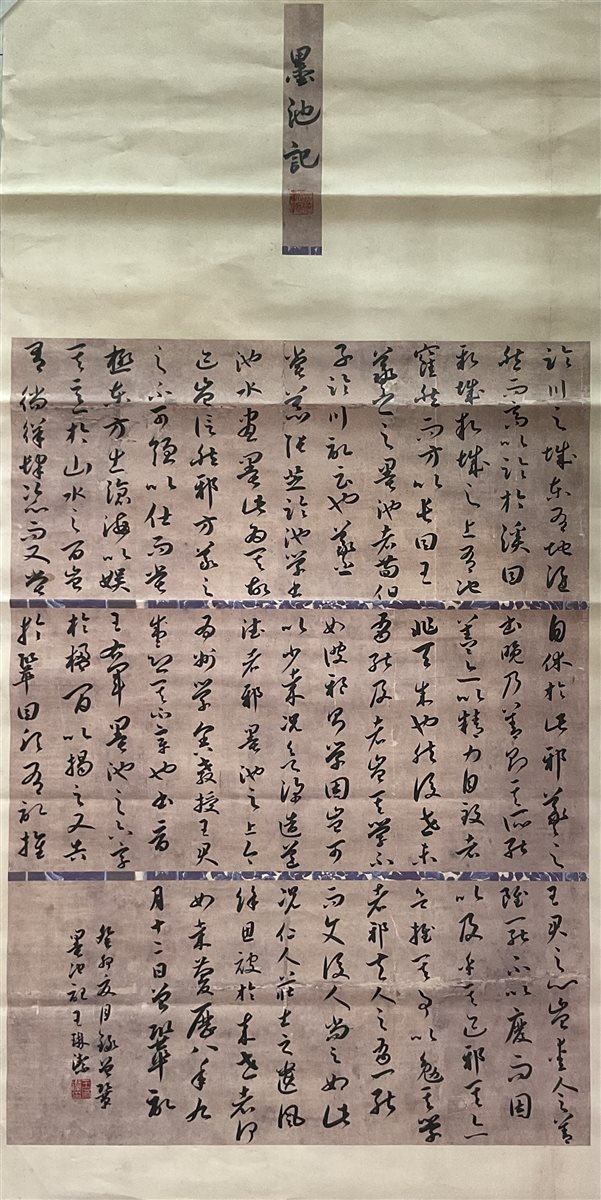 墨池記
臨川之城東有地隱
然而高以臨於溪曰
新城新城之上有池
窪然而方以長曰王
羲之之墨池者荀伯
子臨川記云也羲之
嘗慕張芝臨池學書
池水盡墨此為其故
迹豈信然邪方羲之
之不可強以仕而嘗
極東方出滄海以娛
其意於山水之間豈
有徜徉肆恣而又嘗
自休於此邪羲之之
書晚乃善則其所能
蓋亦以精力自致者
非天成也然後世未
有能及者豈其學不
如彼邪則學固豈可
以少哉況欲深造道
德者邪墨池之上今
為州學舍教授王君
盛恐其不章也書晉
王右軍墨池之六字
於楹間以揭之又告
於鞏曰願有記推
王君之心豈愛人之善
雖一能不以廢而因
以及乎其迹邪其亦
欲推其事以勉其學
者邪夫人之有一能
而使後人尚之如此
況仁人莊士之遺風
餘思被於來世者何
如哉慶曆八年九
月十二日曾鞏記
癸卯夏月錄曾鞏
墨池記王琳